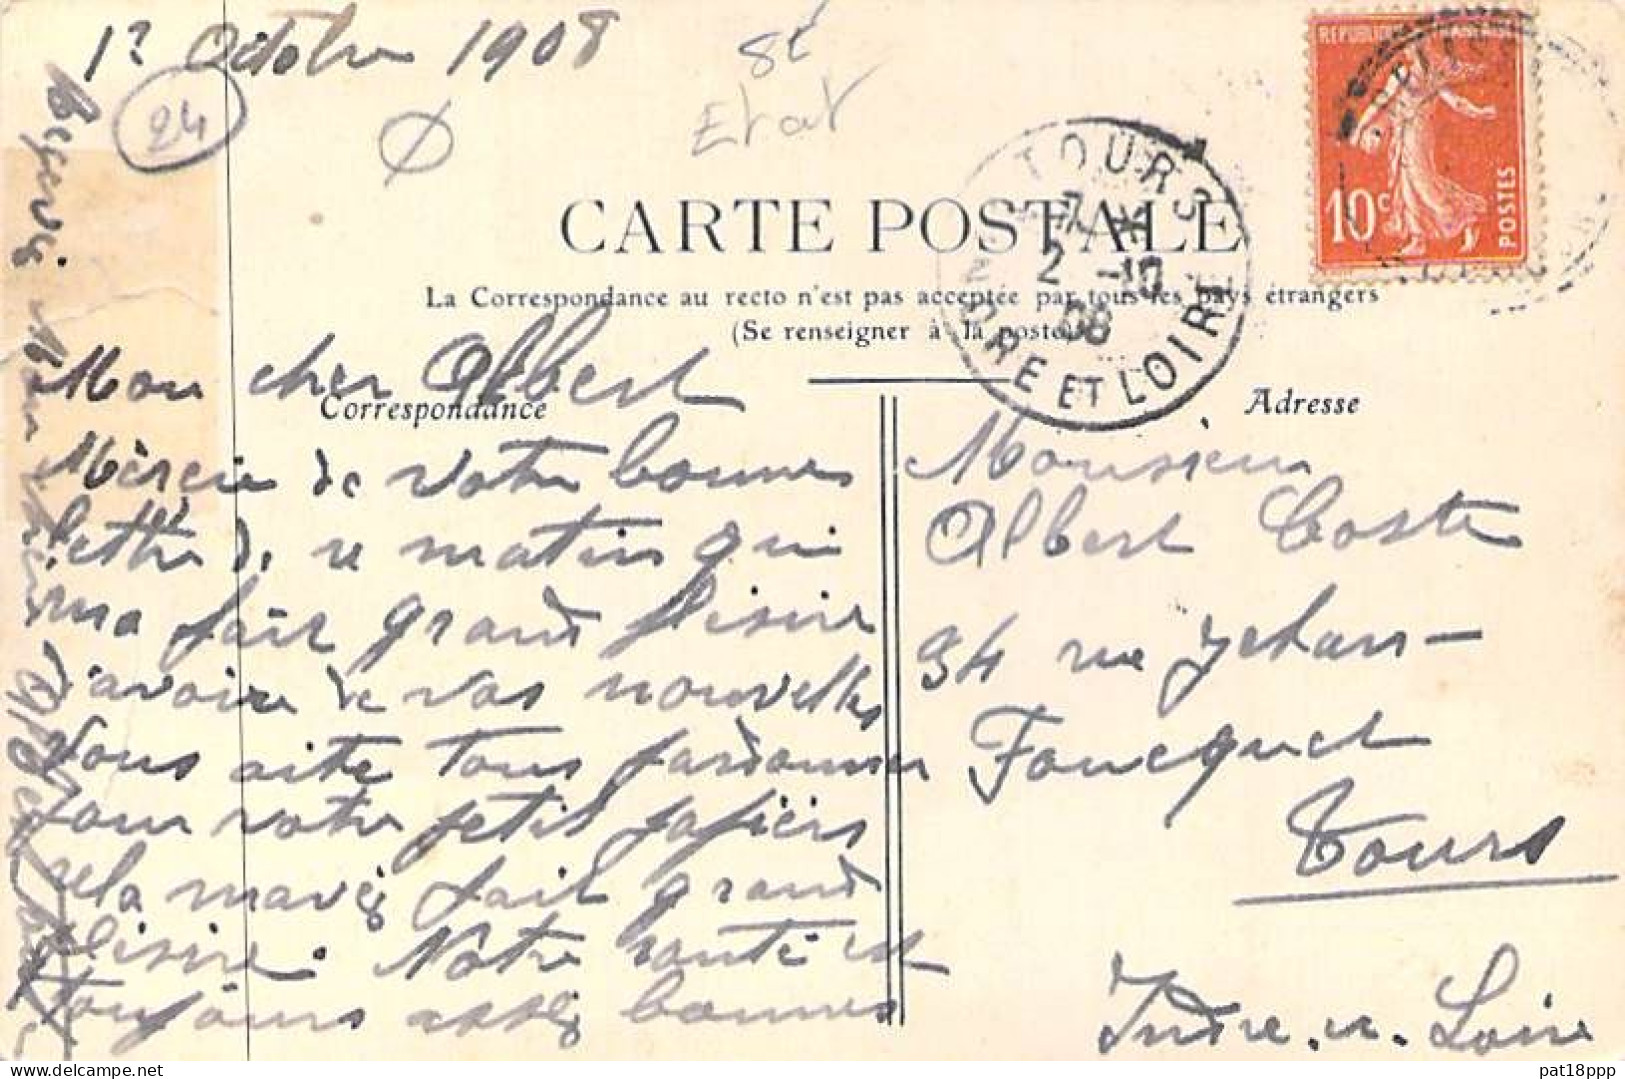 1? Octobre 1908
24
St
Etat
REPUBLIQUE FRANÇAISE
10c
POSTES
TOURS
7
2 -10
08
INDRE ET LOIRE
CARTE POSTALE
La Correspondance au recto n'est pas acceptée par tous les pays étrangers
(Se renseigner à la poste)
Correspondance
Adresse
Mon cher Albert
Mèrcie de votre bonnes
lettre de ce matin qui
ma fait grand plisire
d'avoire de vos nouvelles
Vous aite tous pardonner
pour votre petit papiers
cela mavéz fait grand
plisire. Nôtre santé est
toujours asséz bonnes
Monsieur
Albert Coste
94 rue Jehan-
Foucquet
Tours
Indre-et-Loire
Mon cher Albert
pat18ppp